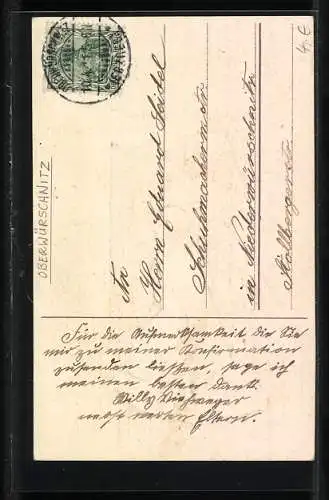 OBERWÜRSCHNITZ
4.€
An
Herrn Eduard Seidel
Schuhmachermstr
in Niederwürschnitz
Stollbergerstr.
Für die Aufmerksamkeit die Sie
mir zu meiner Konfirmation
zusenden liesßen, sage ich
meinen besten Dank.
Willy Viehweger
nebst werten Eltern.